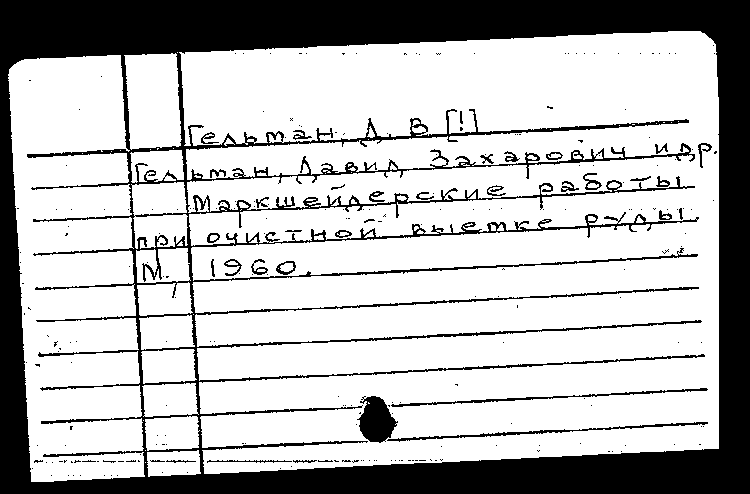 Гельман, Д. В [!]
Гельман, Давид Захарович и др.
Маркшейдерские работы
при очистной выемке руды.
М., 1960.